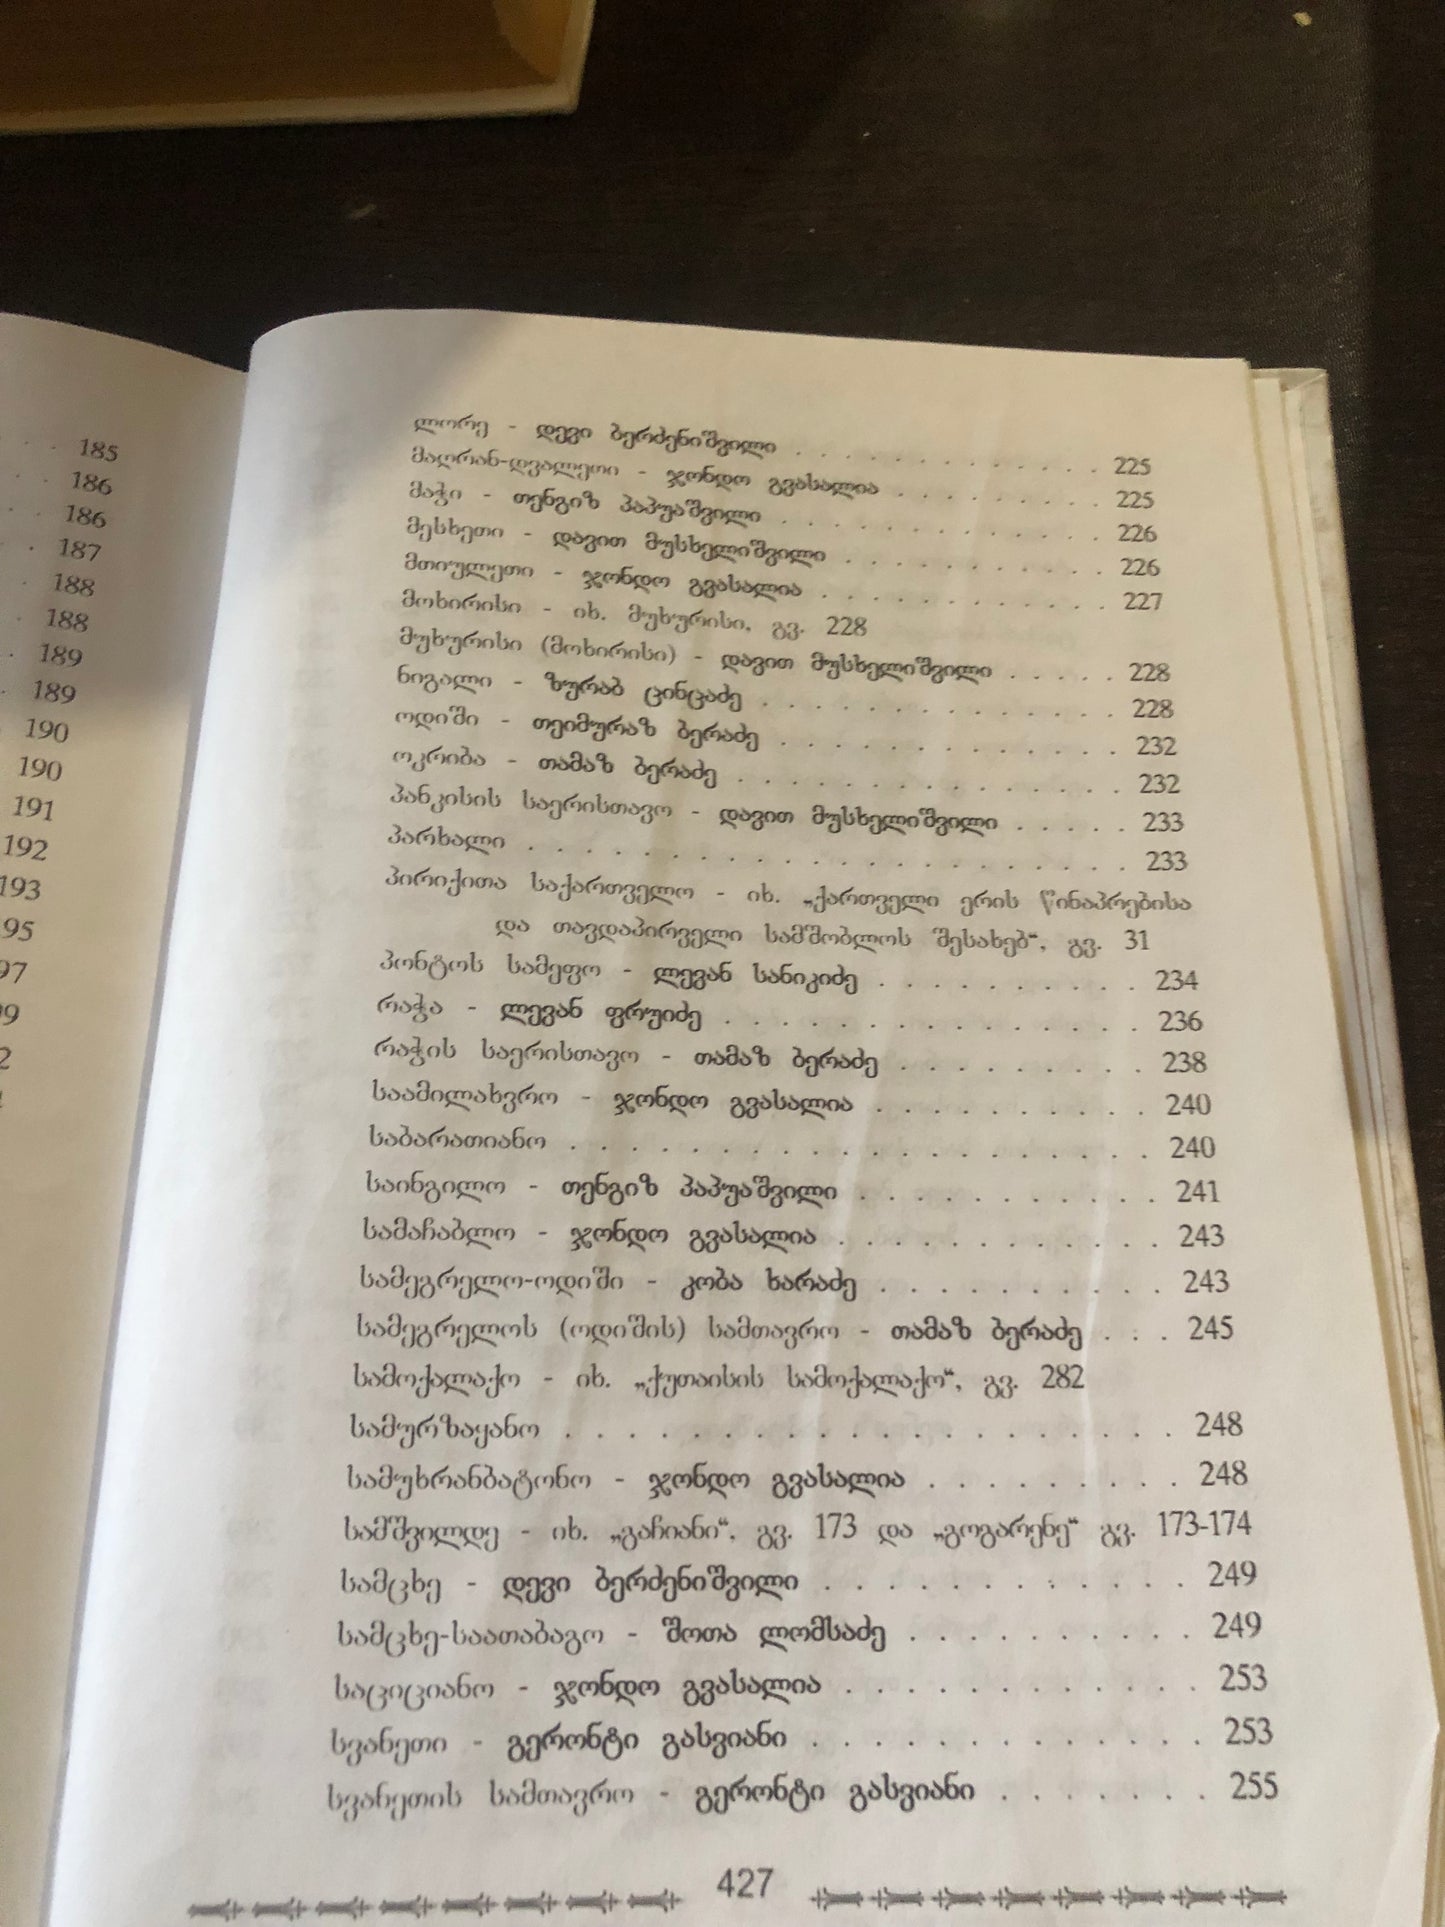 185
186
186
187
188
188
189
189
190
190
191
192
193
95
97
ლორე - დევი ბერძენიშვილი . . . . . . . . . . . . . 225
მაღრან-დვალეთი - ჯონდო გვასალია . . . . . . . . . 225
მაჭი - თენგიზ პაპუაშვილი . . . . . . . . . . . . . 226
მესხეთი - დავით მუსხელიშვილი . . . . . . . . . . . 226
მთიულეთი - ჯონდო გვასალია . . . . . . . . . . . . 227
მოხირისი - იხ. მუხურისი, გვ. 228
მუხურისი (მოხირისი) - დავით მუსხელიშვილი . . . . . 228
ნიგალი - ზურაბ ცინცაძე . . . . . . . . . . . . . . 228
ოდიში - თეიმურაზ ბერაძე . . . . . . . . . . . . . 232
ოკრიბა - თამაზ ბერაძე . . . . . . . . . . . . . . . 232
პანკისის საერისთავო - დავით მუსხელიშვილი . . . . . 233
პარხალი . . . . . . . . . . . . . . . . . . . . . 233
პირიქითა საქართველო - იხ. „ქართველი ერის წინაპრებისა
და თავდაპირველი სამშობლოს შესახებ“, გვ. 31
პონტოს სამეფო - ლევან სანიკიძე . . . . . . . . . . 234
რაჭა - ლევან ფრუიძე . . . . . . . . . . . . . . . 236
რაჭის საერისთავო - თამაზ ბერაძე . . . . . . . . . 238
საამილახვრო - ჯონდო გვასალია . . . . . . . . . . 240
საბარათიანო . . . . . . . . . . . . . . . . . . . 240
საინგილო - თენგიზ პაპუაშვილი . . . . . . . . . . . 241
სამაჩაბლო - ჯონდო გვასალია . . . . . . . . . . . . 243
სამეგრელო-ოდიში - კობა ხარაძე . . . . . . . . . . 243
სამეგრელოს (ოდიშის) სამთავრო - თამაზ ბერაძე . . . 245
სამოქალაქო - იხ. „ქუთაისის სამოქალაქო“, გვ. 282
სამურზაყანო . . . . . . . . . . . . . . . . . . . . 248
სამუხრანბატონო - ჯონდო გვასალია . . . . . . . . . 248
სამშვილდე - იხ. „გაჩიანი“, გვ. 173 და „გოგარენე“ გვ. 173-174
სამცხე - დევი ბერძენიშვილი . . . . . . . . . . . . 249
სამცხე-საათაბაგო - შოთა ლომსაძე . . . . . . . . . . 249
საციციანო - ჯონდო გვასალია . . . . . . . . . . . . 253
სვანეთი - გერონტი გასვიანი . . . . . . . . . . . . . 253
სვანეთის სამთავრო - გერონტი გასვიანი . . . . . . . 255
427